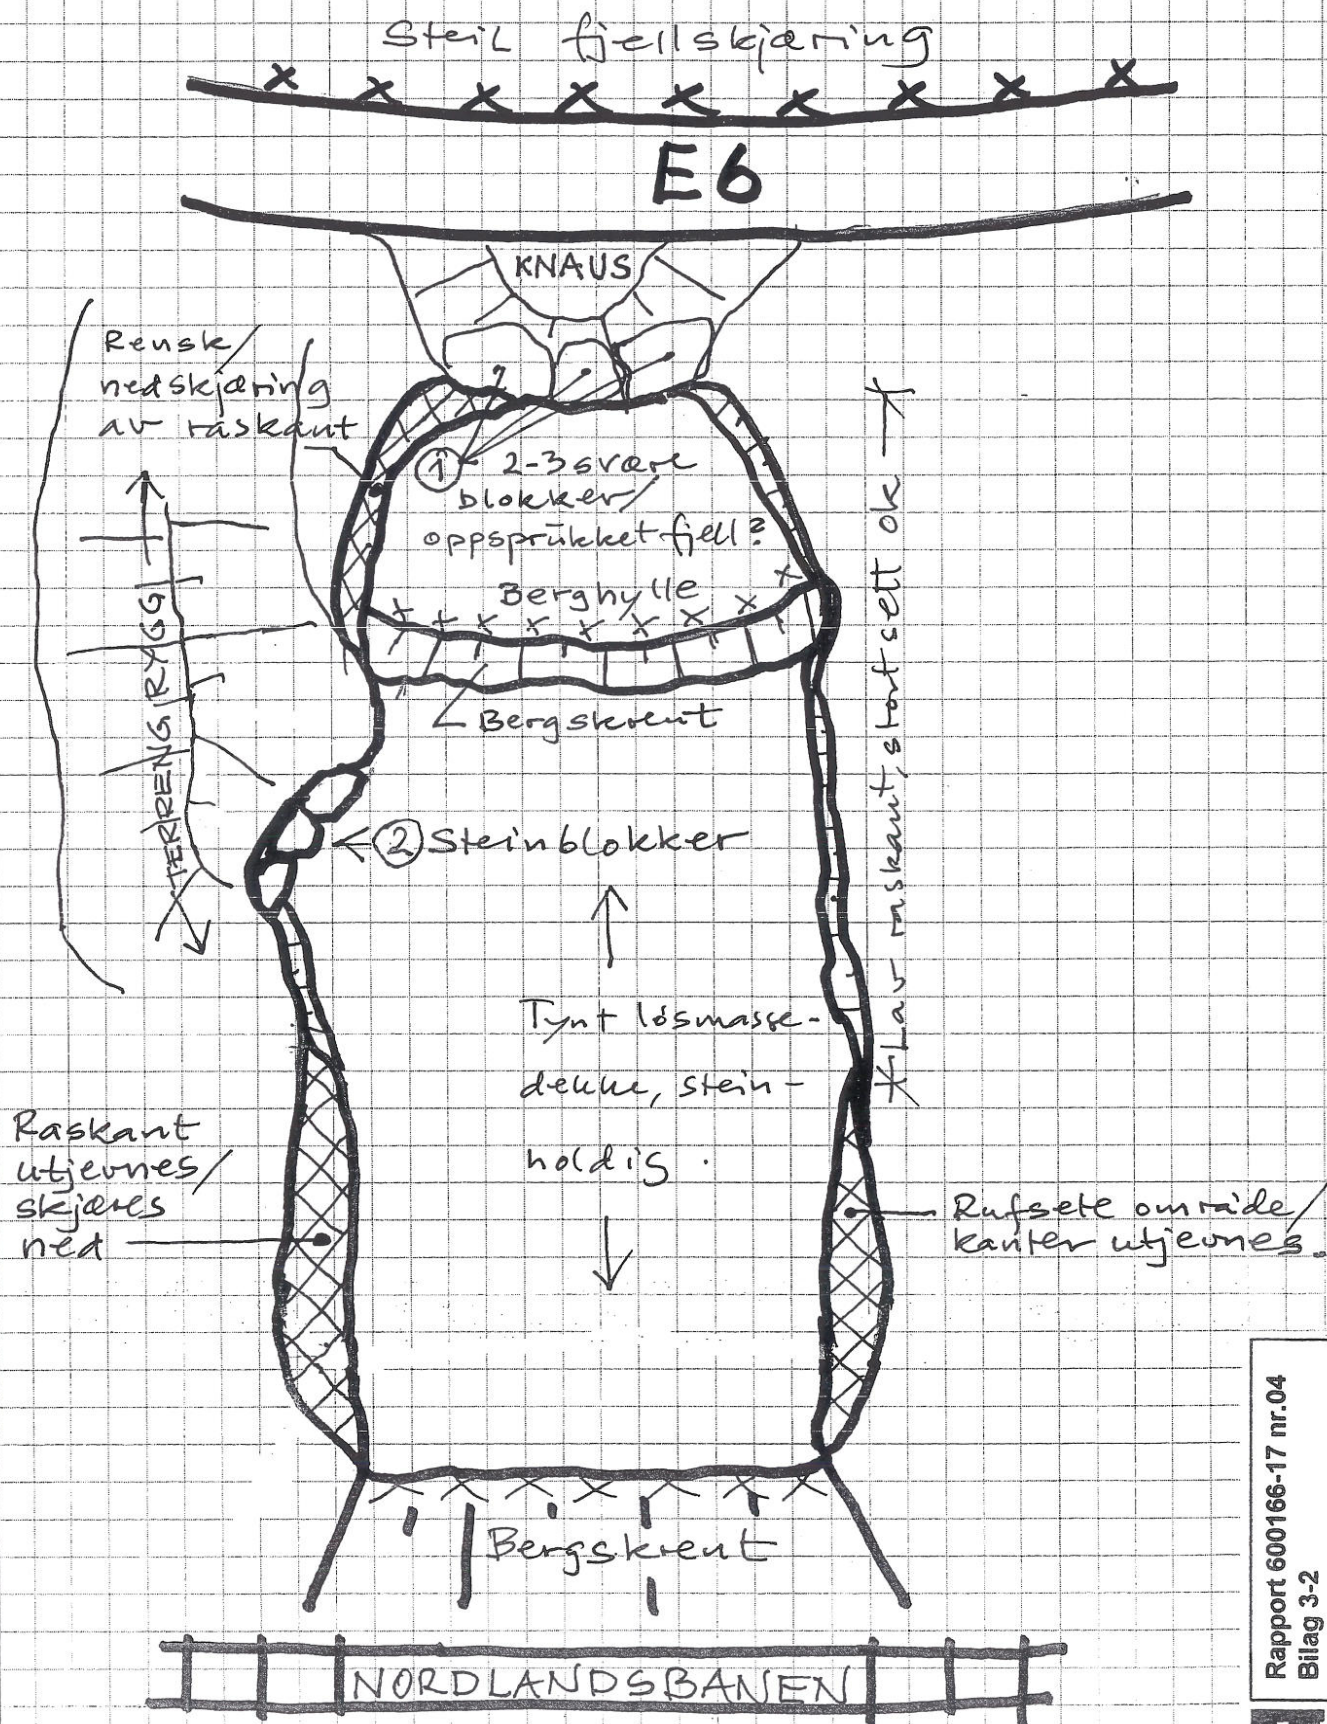 Steil fjellskjæring
E6
KNAUS
Rensk/
nedskjæring
av raskant
① 2-3 svære
blokker/
oppsprukket fjell?
Berghylle
Bergskrent
TERRENGRYGG
Lav raskant, stort sett ok
② Steinblokker
Tynt løsmasse-
dekke, stein-
holdig.
Raskant
utjevnes/
skjæres
ned
Rufsete område/
kanter utjevnes.
Bergskrent
NORDLANDSBANEN
Rapport 600166-17 nr.04
Bilag 3-2